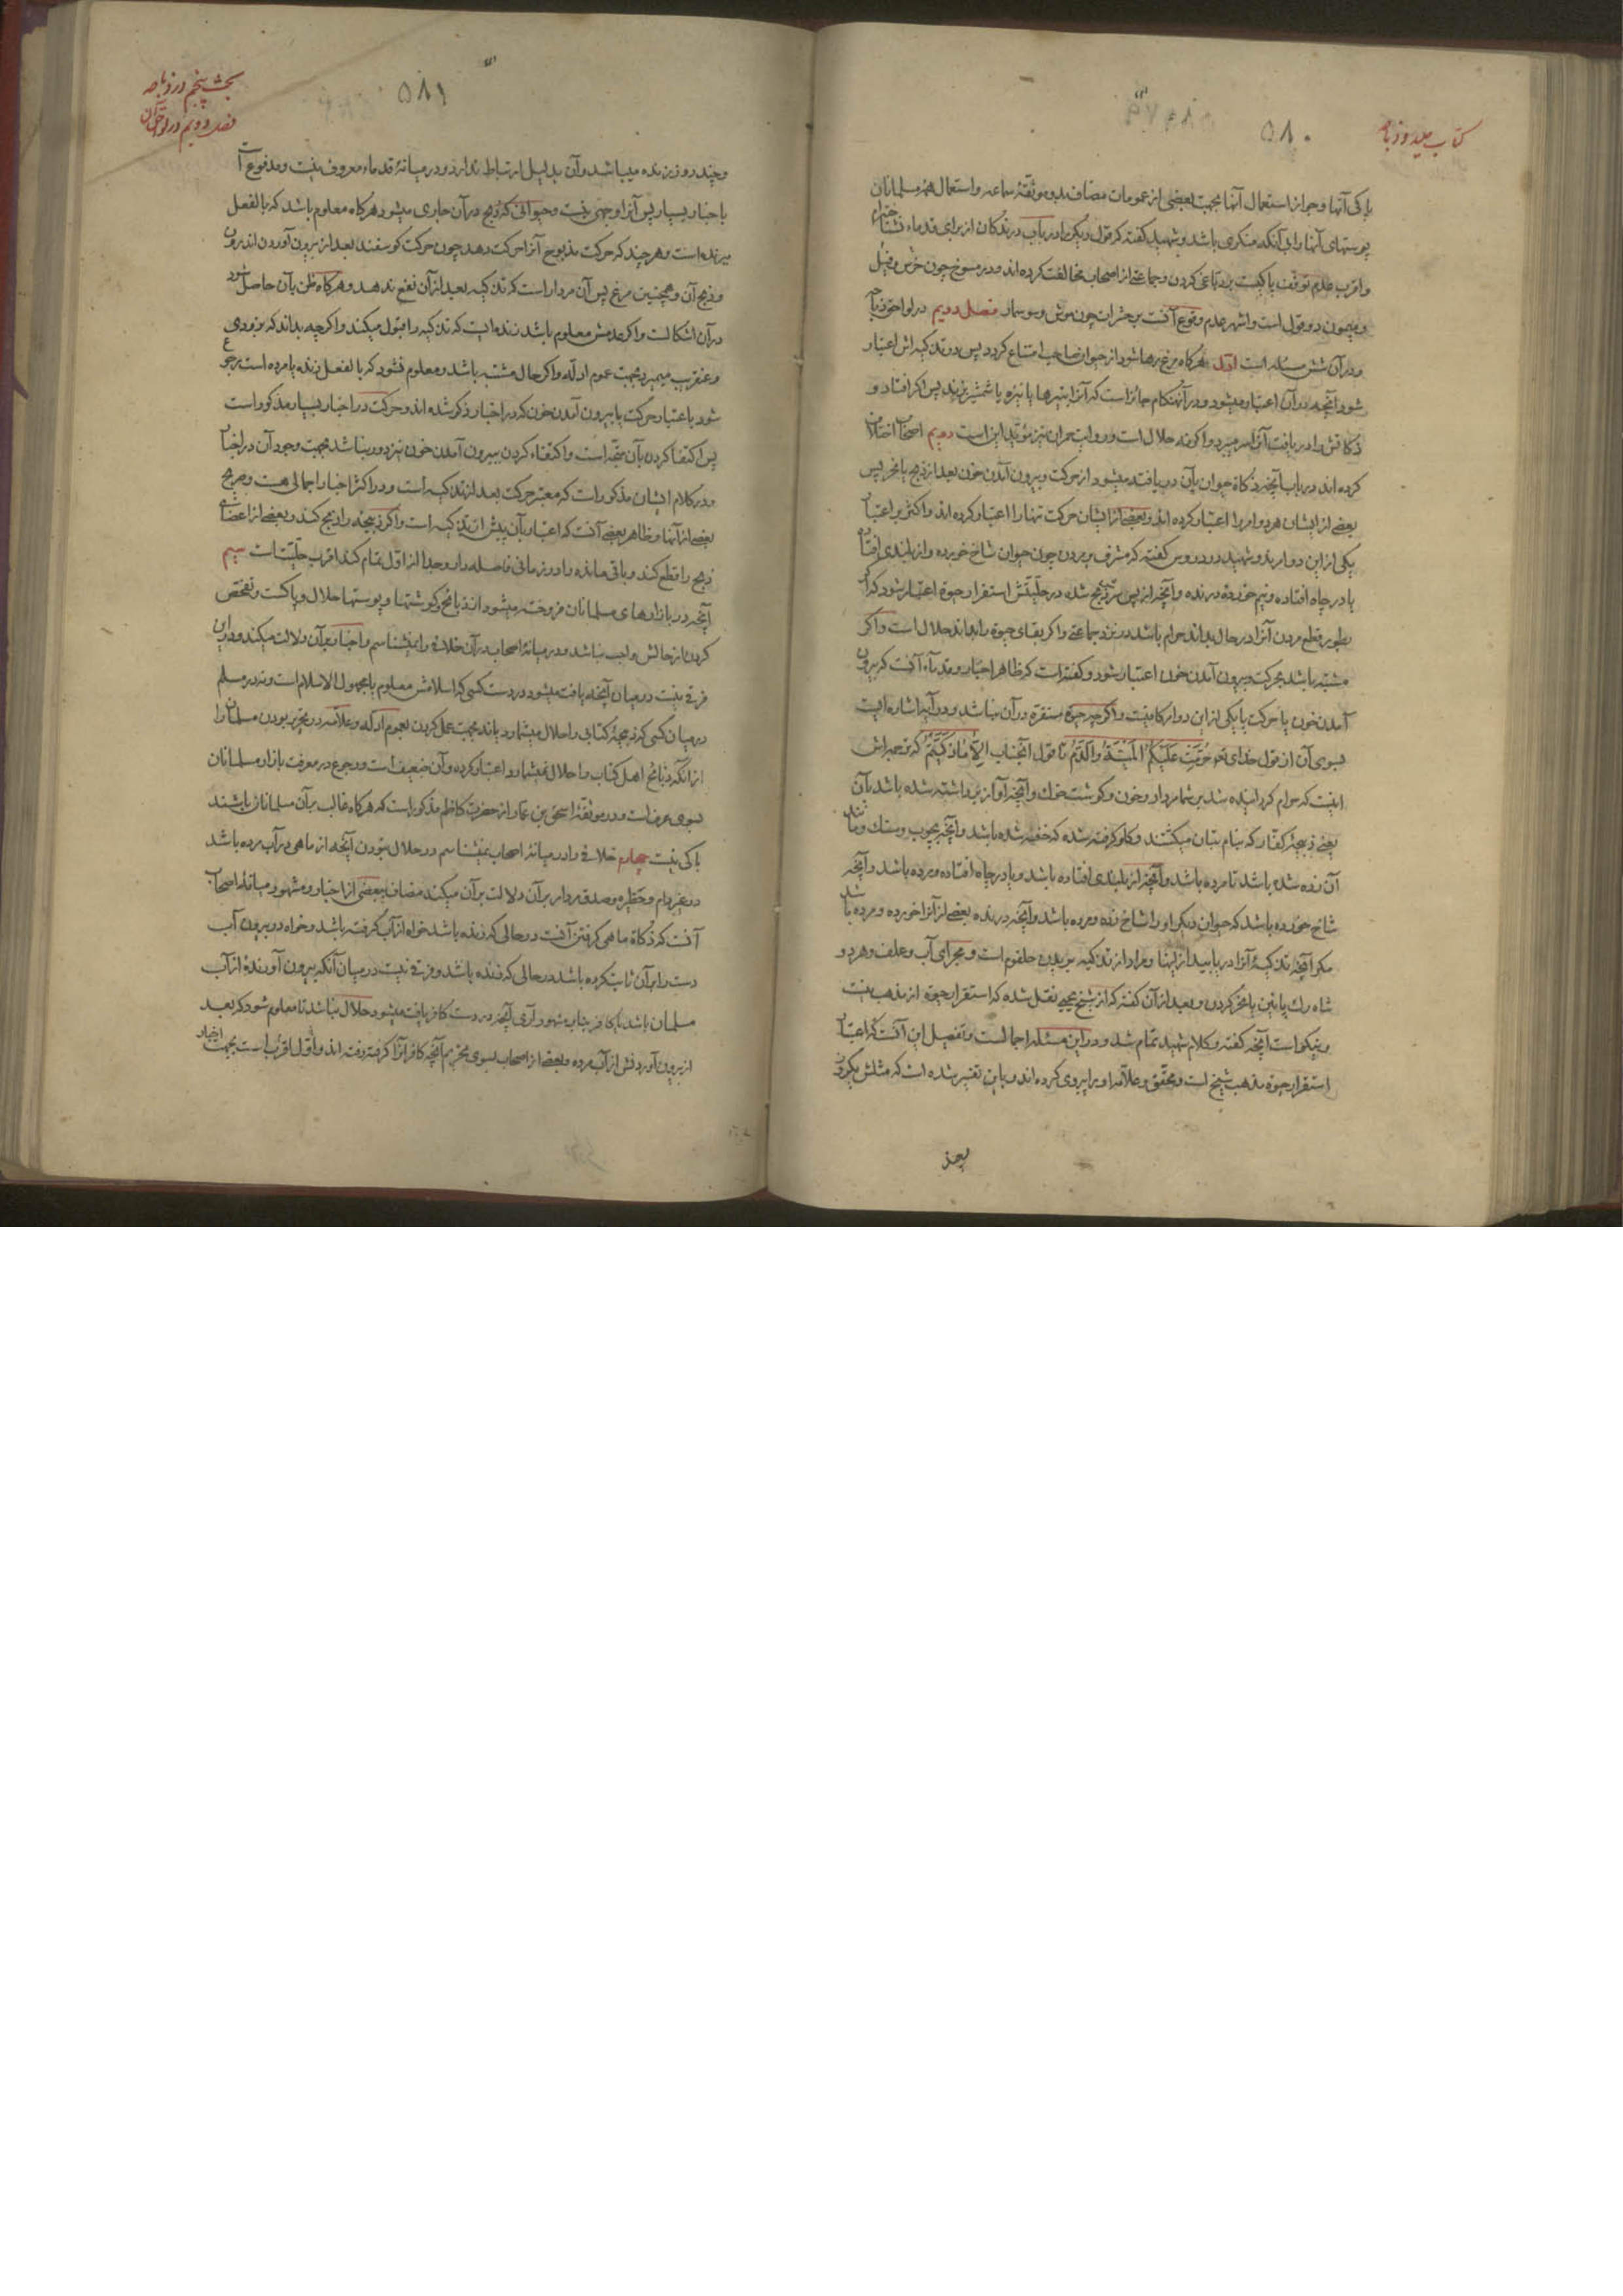 کتاب صید و ذباحه
۵۸۰
پاکی آنها و جواز استعمال آنها بجهت بعضی از عمومات مضاف بدو موثقهٔ سماعه و استعمال همهٔ مسلمانان
پوستهای آنها را بی آنکه منکری باشد و شهید گفته که قول دیگر ما در باب درندگان از برای قدماء نشناختم
و اقرب عدم توقف پاکیست بر دباغی کردن و جماعتی از اصحاب مخالفت کرده اند و در مسوخ چون خرس و فیل
و میمون دو قول است و اشهر عدم وقوع آنست بر حشرات چون موش و سوسمار فصل دویم در لواحق ذباحه
و در آن شش مسئله است اول هرگاه مرغ رها شود از حیوان صاحب امتناع گردد پس در تذکیه اش اعتبار
شود آنچه در آن اعتبار میشود و در آنهنگام جائز است که آنرا به تیرها یا نیزه یا شمشیر بزند پس اگر افتاد و
ذکاتش را دریافت آنرا سر میبرد و اگر نه حلال است و روایت حمران نیز مؤید این است دویم اصحاب اختلاف
کرده اند در باب آنچه ذکاة حیوان بآن دریافته میشود از حرکت و بیرون آمدن خون بعد از ذبح یا نحر پس
بعضی از ایشان هر دو امر را اعتبار کرده اند و بعضی از ایشان حرکت تنها را اعتبار کرده اند و اکثر بر اعتبار
یکی از این دو امرند و شهید در دروس گفته که مشرف بر مردن چون حیوان شاخ خورده و از بلندی افتاده
یا در چاه افتاده و نیم خوردهٔ درنده و آنچه از پس سر ذبح شده در حلیتش استقرار حیوة اعتبار شود که اگر
بطور قطع مردن آنرا در حال بداند حرام باشد در نزد جماعتی و اگر بقای حیوة را بداند حلال است و اگر
مشتبه باشد بحرکت و بیرون آمدن خون اعتبار شود و گفته است که ظاهر اخبار و قدماء آنست که بیرون
آمدن خون یا حرکت یا یکی از این دو امر کافیست و اگرچه حیوة مستقره در آن نباشد و در آیه اشاره ایست
بسوی آن از قول خدای تع حُرِّمَت عَلَیکُمُ المَیتَةُ وَالدَّمُ تا قول آنجناب اِلّا ما ذَکَّیتُم که ترجمه اش
اینست که حرام گردانیده شد بر شما مردار و خون و گوشت خوک و آنچه آواز برداشته شده باشد بآن
یعنی ذبیحهٔ کفار که بنام بتان میکشند و گلو گرفته شده که خفه شده باشد و آنچه بچوب و سنگ و مانند
آن زده شده باشد تا مرده باشد و آنچه از بلندی افتاده باشد و یا در چاه افتاده و مرده باشد و آنچه
شاخ خورده باشد که حیوان دیگر او را شاخ زده و مرده باشد و آنچه درنده بعضی از آنرا خورده و مرده باشد
مگر آنچه تذکیهٔ آنرا دریابید از اینها و مراد از تذکیه بریدن حلقوم است و مجرای آب و علف و هر دو
شاه رگ پائین یا نحر کردن و بعد از آن گفته که از شیخ یحیی نقل شده که استقرار حیوة از مذهب نیست
و نیکو است آنچه گفته و کلام شهید تمام شد و در این مسئله اجمالست و تفصیل این آنست که اعتبار
استقرار حیوة مذهب شیخ است و محقق و علامه او را پیروی کرده اند و باین تفسیر شده است که مثلش یکروز
۵۸۱
بحث پنجم در ذباحه
فصل دویم در لواحق آن
و چند روز زنده میباشد و آن بدلیل ارتباط ندارد و در میانهٔ قدماء معروف نیست و مدفوع است
باخبار بسیار پس آنرا وجهی نیست و حیوانی که ذبح در آن جاری میشود هرگاه معلوم باشد که بالفعل
میرنده است و هر چند که حرکت مذبوح آنرا حرکت دهد چون حرکت گوسفند بعد از بیرون آوردن اندرون
و ذبح آن و همچنین مرغ پس آن مردار است که تذکیه بعد از آن نفع ندهد و هرگاه ظن بآن حاصل شود
در آن اشکالست و اگر عدمش معلوم باشد زنده ایست که تذکیه را قبول میکند و اگرچه بداند که بزودی
و عنقریب میمیرد بجهت عموم ادله و اگر حال مشتبه باشد و معلوم نشود که بالفعل زنده یا مرده است رجوع
شود باعتبار حرکت یا بیرون آمدن خون که در اخبار ذکر شده اند و حرکت در اخبار بسیار مذکور است
پس اکتفا کردن بآن متجه است و اکتفاء کردن ببیرون آمدن خون نیز دور نباشد بجهت وجود آن در اخبار
و در کلام ایشان مذکور است که معتبر حرکت بعد از تذکیه است و در اکثر اخبار اجمالی هست و صریح
بعضی از آنها و ظاهر بعضی آنست که اعتبار بآن پیش از تذکیه است و اگر ذبیحه را ذبح کند و بعضی از اعضای
ذبح را قطع کند و باقی مانده را در زمانی فاصله دار و جدا از اول تمام کند اقرب حلیتست سیم
آنچه در بازارهای مسلمانان فروخته میشود از ذبائح و گوشتها و پوستها حلال و پاکست و تفحص
کردن از حالش واجب نباشد و در میانهٔ اصحاب در آن خلاف را نمیشناسم و اخبار بر آن دلالت میکند و در این
فرق نیست در میان آنچه یافت میشود در دست کسی که اسلامش معلوم یا مجهول الاسلام است و نه در مسلم
در میان کسی که ذبیحهٔ کتابی را حلال میشمارد یا نه بجهت عمل کردن بعموم ادله و علامه در تحریر بودن مسلمان را
از آنکه ذبائح اهل کتاب را حلال نمیشمارد اعتبار کرده و آن ضعیف است و رجوع در معرفت بازار مسلمانان
بسوی عرف است و در موثقهٔ اسحق بن عمار از حضرت کاظم مذکور است که هرگاه غالب بر آن مسلمانان باشند
باکی نیست چهارم خلافی را در میانهٔ اصحاب نمیشناسم در حلال نبودن آنچه از ماهی در آب مرده باشد
در غیر دام و حظیره و صدق مردار بر آن دلالت بر آن میکند مضاف ببعضی از اخبار و مشهور میانهٔ اصحاب
آنست که ذکاة ماهی گرفتن آنست در حالی که زنده باشد خواه از آب گرفته باشد و خواه در بیرون آب
دست را بر آن ثابت کرده باشد در حالی که زنده باشد و فرقی نیست در میان آنکه بیرون آورندهٔ از آب
مسلمان باشد یا کافر بنابر مشهور آری آنچه در دست کافر یافت میشود حلال نباشد تا معلوم شود که بعد
از بیرون آوردنش از آب مرده و بعضی از اصحاب بسوی تحریم آنچه کافر آنرا گرفته رفته اند و اول اقرب است بجهت اخبار